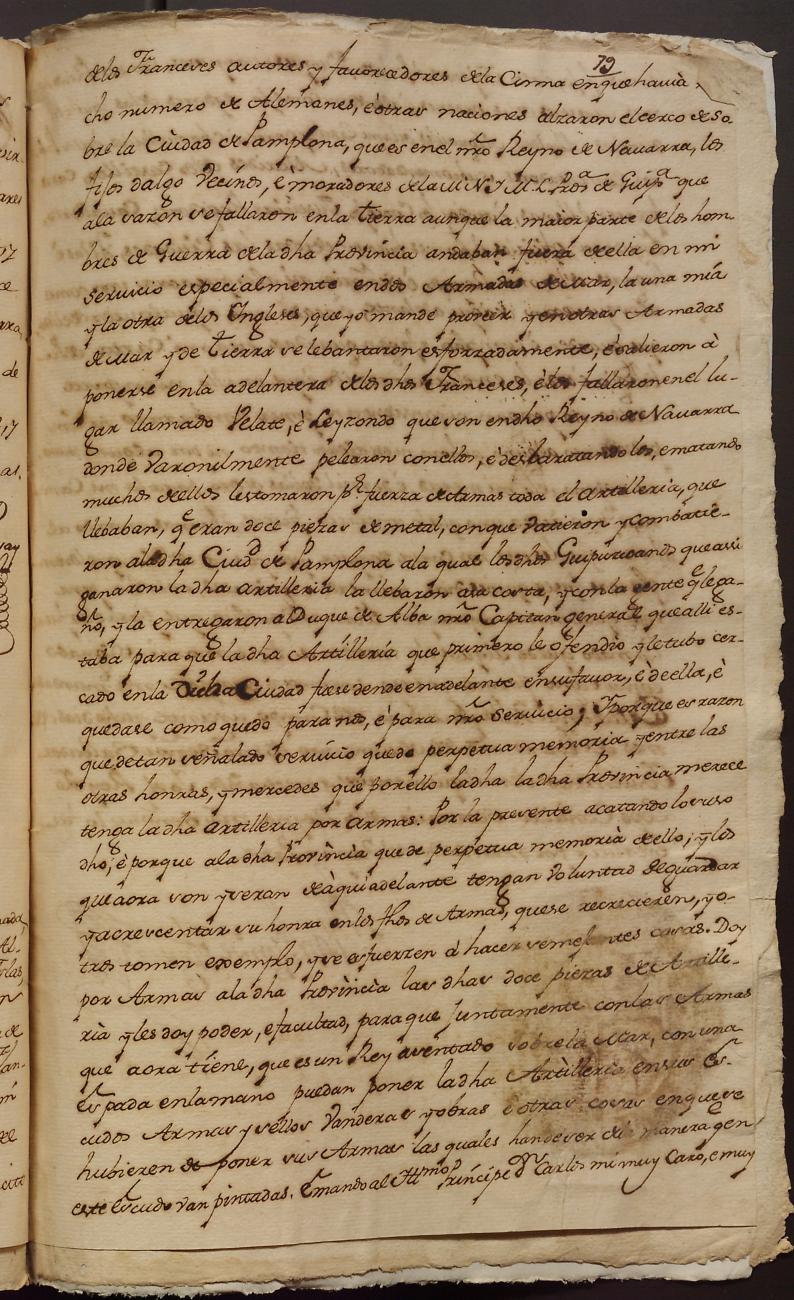 79
delos Franceses autores y favorecedores dela Cisma enque havia
cho numero de Alemanes, è otras naciones alzaron el cerco de so
bre la Ciudad de Pamplona, que es enel nrõ Reyno de Navarra, los
fijos dalgo Vecinos, è moradores dela M.N. y M.L. Proã de Guipã que
ala sazon se fallaron enla tierra aunque la maior parte de los hom
bres de Guerra dela dha Provincia andaban fuera de ella en mi
servicio especialmente endos Armadas de Mar, la una mia
y la otra delos Ingleses, que yo mande proveer y enotras Armadas
de Mar y de tierra se lebantaron esforzadamente, è salieron à
ponerse enla adelantera delos dhos Franceses, è los fallaron enel lu-
gar llamado Velate, è Leyzondo que son en dho Reyno de Navarra
donde Varonilmente pelearon con ellos, è desbaratando los, e matando
muchos de ellos les tomaron pr fuerza de Armas toda el artilleria, que
llebaban, qe eran doce piezas de metal, con que vatieron y combatie-
ron ala dha Ciud de Pamplona ala qual los dhos Guipuzcoanos que assi
ganaron la dha artilleria la llebaron a su costa, y con la gente qe le ga-
ñò, y la entregaron al Duque de Alba nrõ Capitan general que alli es-
taba para que la dha Artilleria que primero le ofendio y le tubo cer-
cado en la dicha Ciudad fuese dende en adelante en su favor, è de ella, è
quedase como quedò para nos, è para nrõ Servicio; Y porque es razon
que de tan señalado servicio quede perpetua memoria y entre las
otras honras, y mercedes que por ello la dha la dha Provincia merece
tenga la dha artilleria por armas: Por la presente acatando lo suso
dho, è porque ala dha Provincia quede perpetua memoria de ello, y los
que aora son y seran de aqui adelante tengan voluntad de guardar
y acrescentar su honra en los fhos de Armas, que se recrecieren, y o-
tros tomen exemplo, y se esfuerzen à hacer semejantes cosas. Doy
por Armas ala dha Provincia las dhas doce piezas de Artille-
ria y les doy poder, e facultad, para que juntamente con las Armas
que aora tiene, que es un Rey aventado sobre la Mar, con una
Espada en la mano puedan poner la dha Artilleria en sus Es-
cudos Armas y sellos Vanderas y obras è otras cosas en que se
hubieren de poner sus Armas las quales han de ser de manera qe en
este Escudo van pintadas. Emando al Illmo Principe Dn Carlos mi muy Caro, e muy